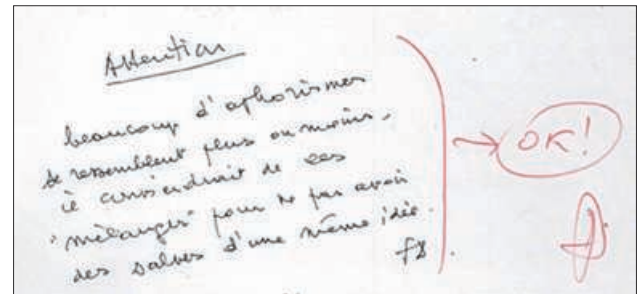 Attention
beaucoup d'aphorismes
se ressemblent plus ou moins,
il conviendrait de les
"mélanger" pour ne pas avoir
des salves d'une même idée.
OK!